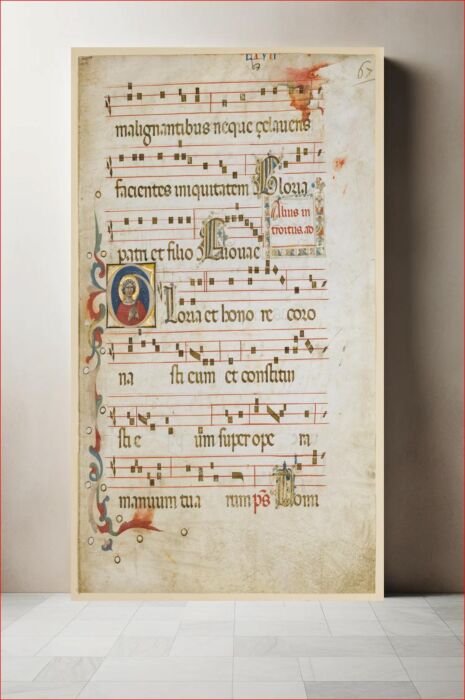 LXVII
67
malignantibus neque zelaveris
facientes iniquitatem Gloria
Alius in
troitus. ad
patri et filio Euouae
Gloria et hono re coro
na sti eum et constitui
sti e um super ope ra
manuum tua rum ps Domi